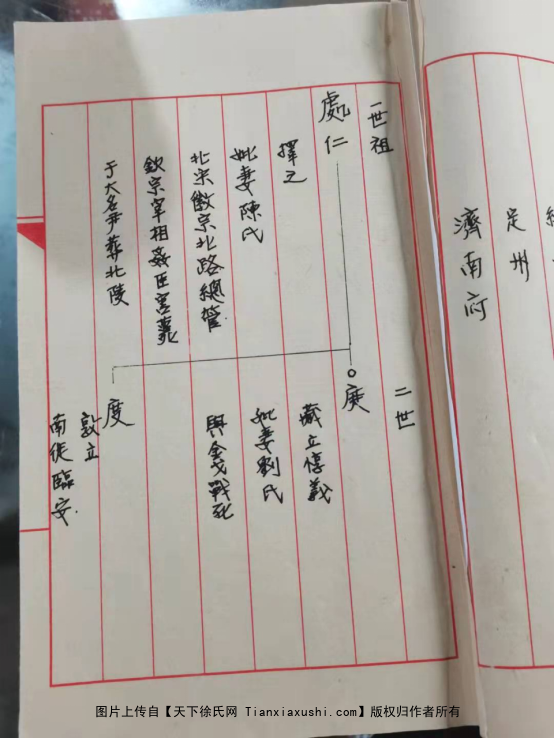 定州
濟南府
一世祖
處仁
擇之
妣妻陳氏
北宋徽宗北路總管
欽宗宰相姦臣害薨
于大名尹葬北陵
二世
庚
藏立惇義
妣妻劉氏
與金戰死
度
敦立
南徙臨安
图片上传自【天下徐氏网 Tianxiaxushi.com】版权归作者所有